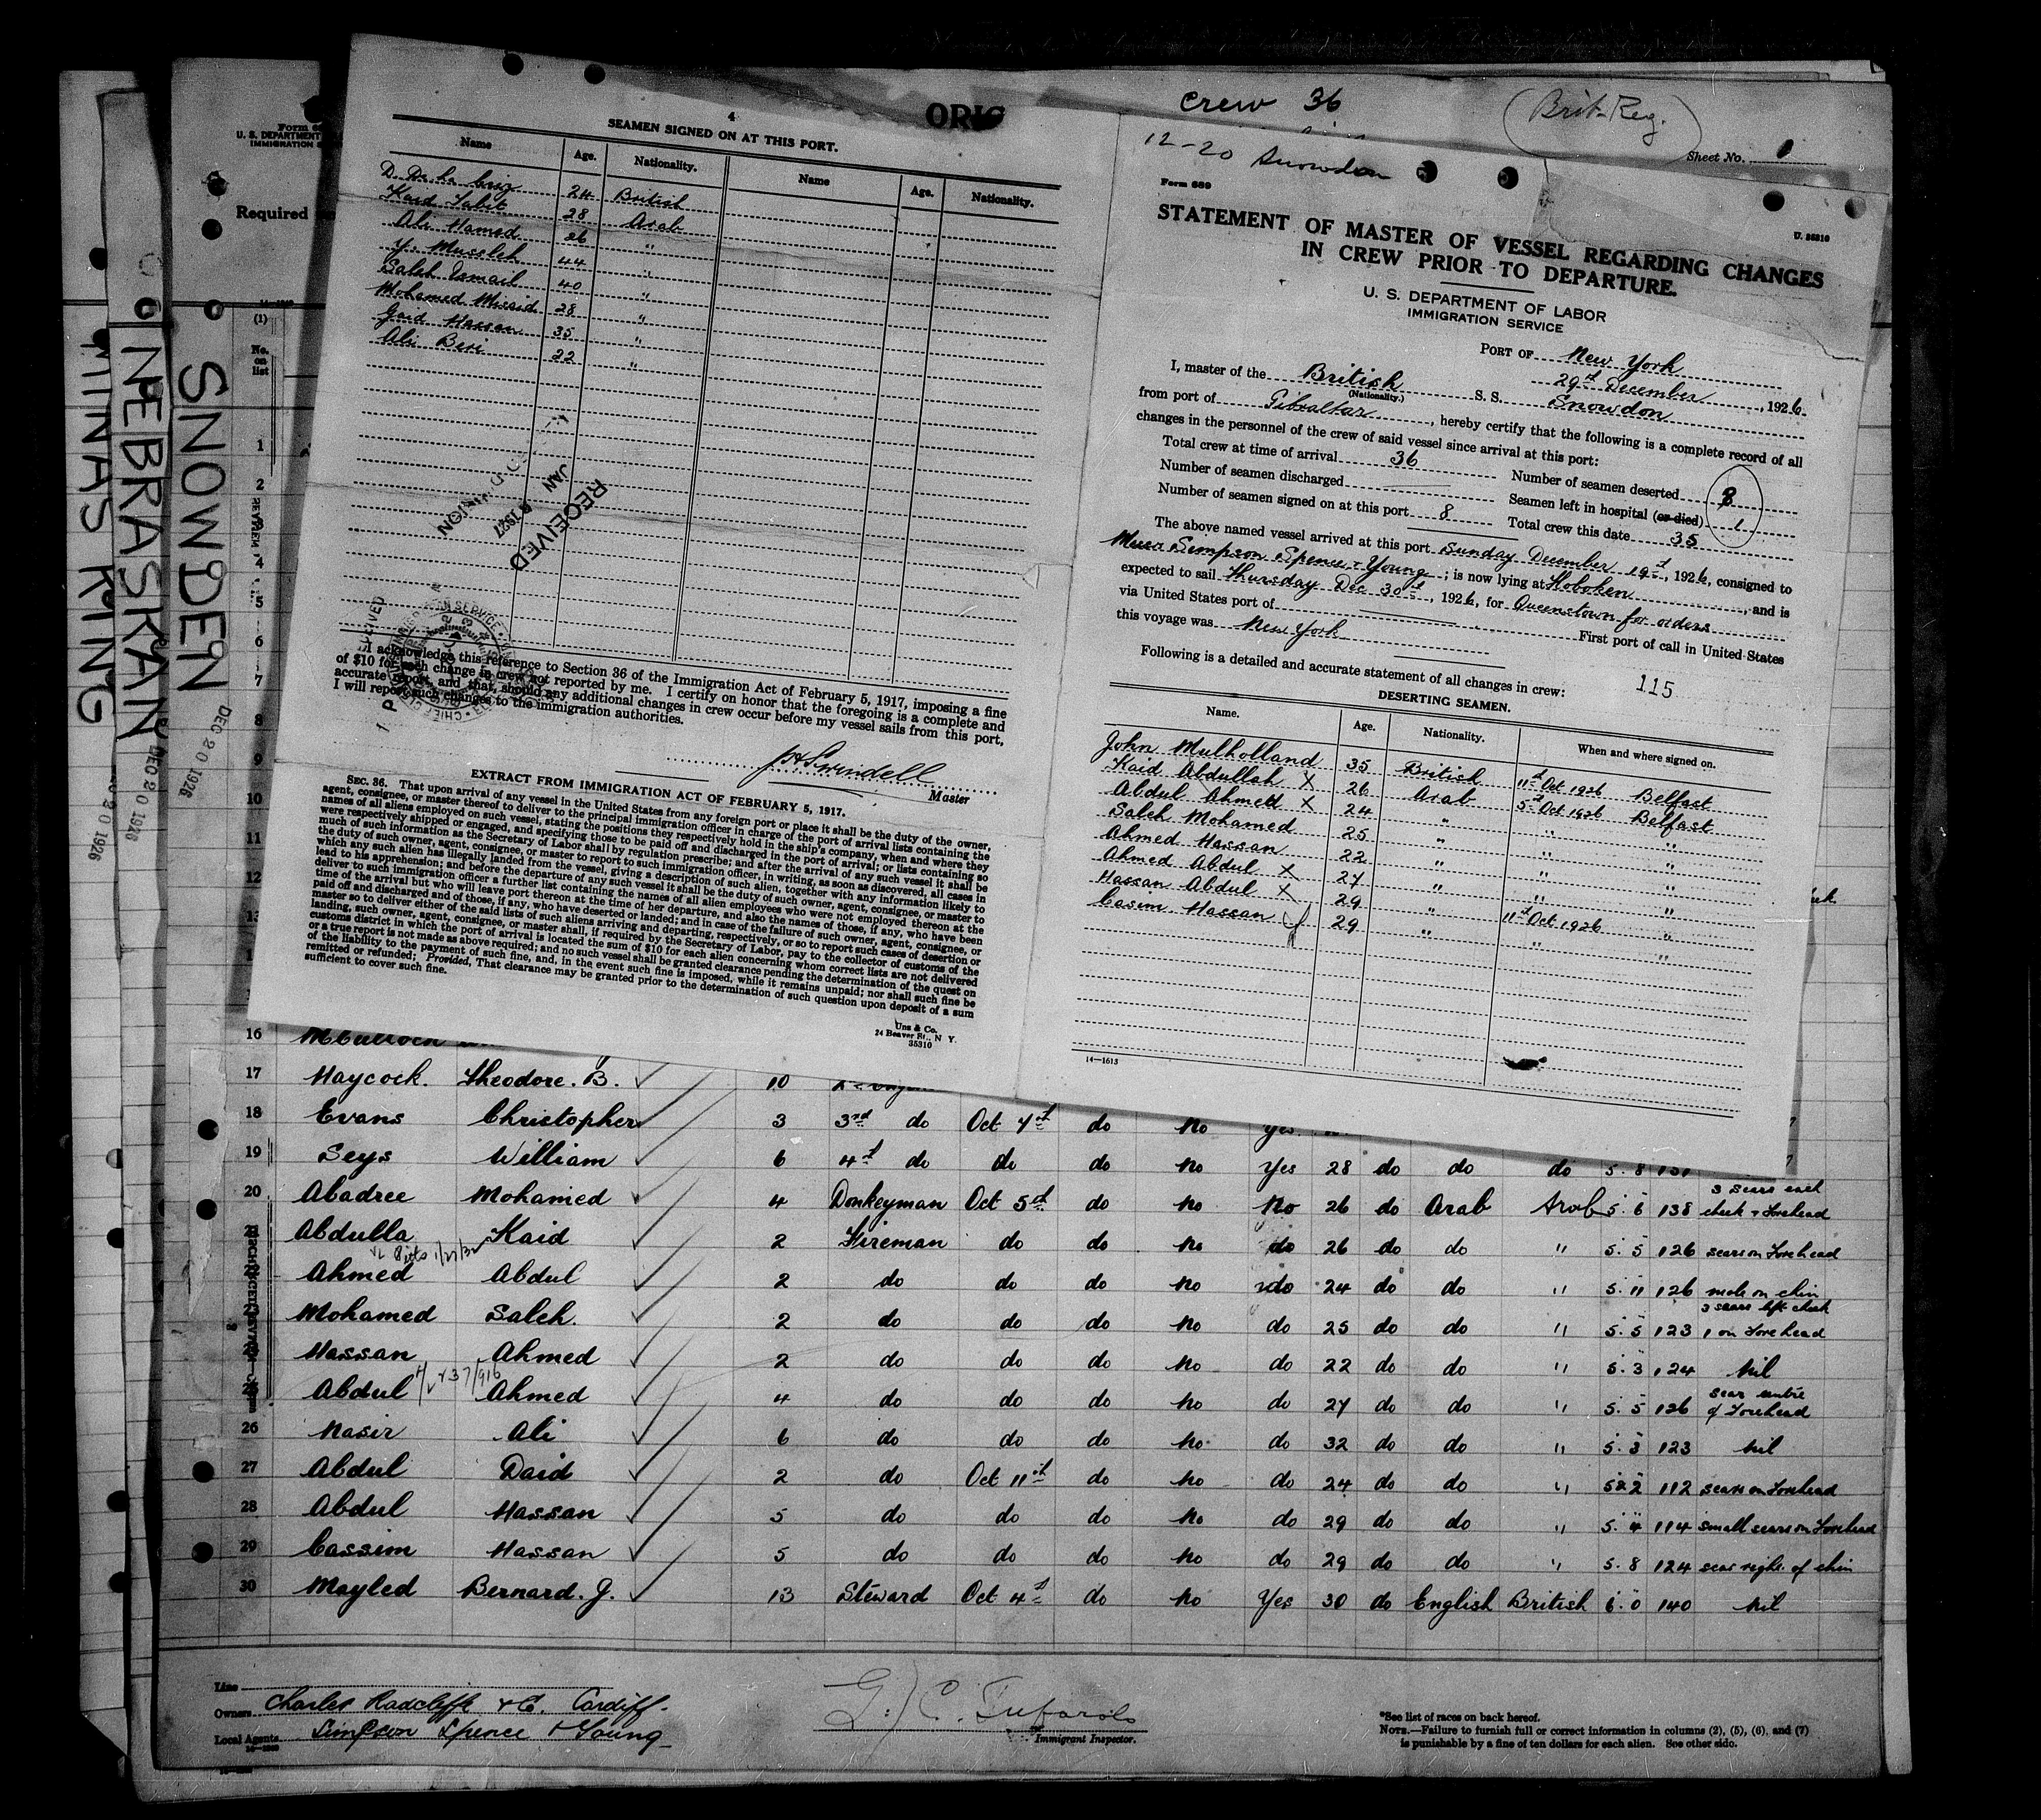 crew 36
(Brit. Reg.)
Sheet No. 1
12-20 Snowdon
ORIG
Form 68
U. S. DEPARTMENT
IMMIGRATION S
Required
(1)
No. on list
SNOWDEN
NEBRASKAN
MINNAS KING
DEC 20 1926
DEC 20 1926
20 1926
4
SEAMEN SIGNED ON AT THIS PORT.
Name Age. Nationality. Name Age. Nationality.
24 British
Kaid Sabit 28 Arab
Ali Hamed 26 "
Y. Mussleh 44 "
Saleh Esmail 40 "
Mohamed Misaid 28 "
Gaid Hassan 35 "
Ali Beri 22 "
RECEIVED
JAN 1927
RECEIVED
I acknowledge this reference to Section 36 of the Immigration Act of February 5, 1917, imposing a fine
of $10 for each change in crew not reported by me. I certify on honor that the foregoing is a complete and
accurate report, and that, should any additional changes in crew occur before my vessel sails from this port,
I will report such changes to the immigration authorities.
J H Swindell
Master
EXTRACT FROM IMMIGRATION ACT OF FEBRUARY 5, 1917.
SEC. 36. That upon arrival of any vessel in the United States from any foreign port or place it shall be the duty of the owner,
agent, consignee, or master thereof to deliver to the principal immigration officer in charge of the port of arrival lists containing the
names of all aliens employed on such vessel, stating the positions they respectively hold in the ship's company, when and where they
were respectively shipped or engaged, and specifying those to be paid off and discharged in the port of arrival; or lists containing so
much of such information as the Secretary of Labor shall by regulation prescribe; and after the arrival of any such vessel it shall be
the duty of such owner, agent, consignee, or master to report to such immigration officer, in writing, as soon as discovered, all cases in
which any such alien has illegally landed from the vessel, giving a description of such alien, together with any information likely to
lead to his apprehension; and before the departure of any such vessel it shall be the duty of such owner, agent, consignee, or master to
deliver to such immigration officer a further list containing the names of all alien employees who were not employed thereon at the
time of the arrival but who will leave port thereon at the time of her departure, and also the names of those, if any, who have been
paid off and discharged and of those, if any, who have deserted or landed; and in case of the failure of such owner, agent, consignee, or
master so to deliver either of the said lists of such aliens arriving and departing, respectively, or so to report such cases of desertion or
landing, such owner, agent, consignee, or master shall, if required by the Secretary of Labor, pay to the collector of customs of the
customs district in which the port of arrival is located the sum of $10 for each alien concerning whom correct lists are not delivered
or a true report is not made as above required; and no such vessel shall be granted clearance pending the determination of the quest on
of the liability to the payment of such fine, and, in the event such fine is imposed, while it remains unpaid; nor shall such fine be
remitted or refunded; Provided, That clearance may be granted prior to the determination of such question upon deposit of a sum
sufficient to cover such fine.
Unz & Co.
24 Beaver St., N Y.
35310
Form 689
U. 35310
STATEMENT OF MASTER OF VESSEL REGARDING CHANGES
IN CREW PRIOR TO DEPARTURE.
U. S. DEPARTMENT OF LABOR
IMMIGRATION SERVICE
PORT OF New York
29th December, 1926.
I, master of the British S. S. Snowdon
(Nationality.)
from port of Gibraltar, hereby certify that the following is a complete record of all
changes in the personnel of the crew of said vessel since arrival at this port:
Total crew at time of arrival 36
Number of seamen discharged Number of seamen deserted 8
Number of seamen signed on at this port 8 Seamen left in hospital (or died) 1
Total crew this date 35
The above named vessel arrived at this port Sunday December 19th, 1926, consigned to
Messrs Simpson Spence & Young; is now lying at Hoboken, and is
expected to sail Thursday Dec 30th, 1926, for Queenstown for orders
via United States port of First port of call in United States
this voyage was New York
Following is a detailed and accurate statement of all changes in crew: 115
DESERTING SEAMEN.
Name. Age. Nationality. When and where signed on.
John Mulholland 35 British 11th Oct 1926 Belfast
Kaid Abdullah X 26 Arab 5th Oct 1926 Belfast
Abdul Ahmed X 24 " " "
Saleh Mohamed 25 " " "
Ahmed Hassan 22 " " "
Ahmed Abdul X 27 " " "
Hassan Abdul X 29 " 11th Oct 1926 "
Casim Hassan 29 " " "
14—1613
1
2
4
5
6
7
8
9
10
11
12
16 McCulloch
17 Haycock. Theodore. B. 10
18 Evans Christopher 3 3rd do Oct 4th do No Yes
19 Seys William 6 4th do do do No Yes 28 do do do 5. 8
20 Abadree Mohamed 4 Donkeyman Oct 5th do No No 26 do Arab Arab 5. 6 138 3 scars each cheek + Forehead
Abdulla Kaid 2 Fireman do do No do 26 do do " 5. 5 126 scars on Forehead
Ahmed Abdul 2 do do do No do 24 do do " 5. 11 126 mole on chin
Mohamed Saleh. 2 do do do No do 25 do do " 5. 5 123 3 scars left cheek 1 on Forehead
Hassan Ahmed 2 do do do No do 22 do do " 5. 3 124 Nil
Abdul Ahmed 4 do do do No do 27 do do " 5. 5 126 scar centre of Forehead
26 Nasir Ali 6 do do do No do 32 do do " 5. 3 123 Nil
27 Abdul Daid 2 do Oct 11th do No do 24 do do " 5 2 112 scars on Forehead
28 Abdul Hassan 5 do do do No do 29 do do " 5. 4 114 small scars on Forehead
29 Cassim Hassan 5 do do do No do 29 do do " 5. 8 124 scar right of chin
30 Mayled Bernard. G. 13 Steward Oct 4th do No Yes 30 do English British 6. 0 140 Nil
Line
Owners Charles Radcliffe & Co. Cardiff.
Local Agents Simpson Spence & Young
Immigrant Inspector.
*See list of races on back hereof.
NOTE.—Failure to furnish full or correct information in columns (2), (5), (6), and (7)
is punishable by a fine of ten dollars for each alien. See other side.